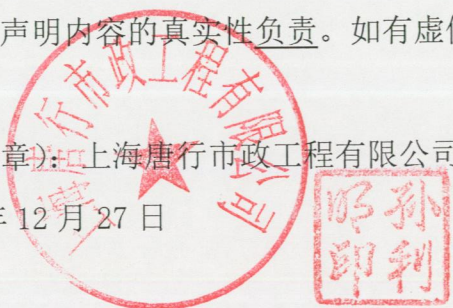 声明内容的真实性负责。如有虚
章）：上海唐行市政工程有限公司
年 12 月 27 日
上海唐行市政工程有限公司
孙利
明印